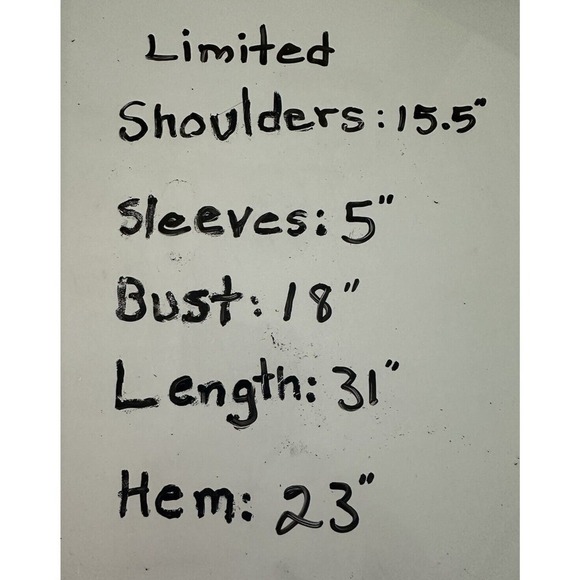 Limited
Shoulders: 15.5"
Sleeves: 5"
Bust: 18"
Length: 31"
Hem: 23"